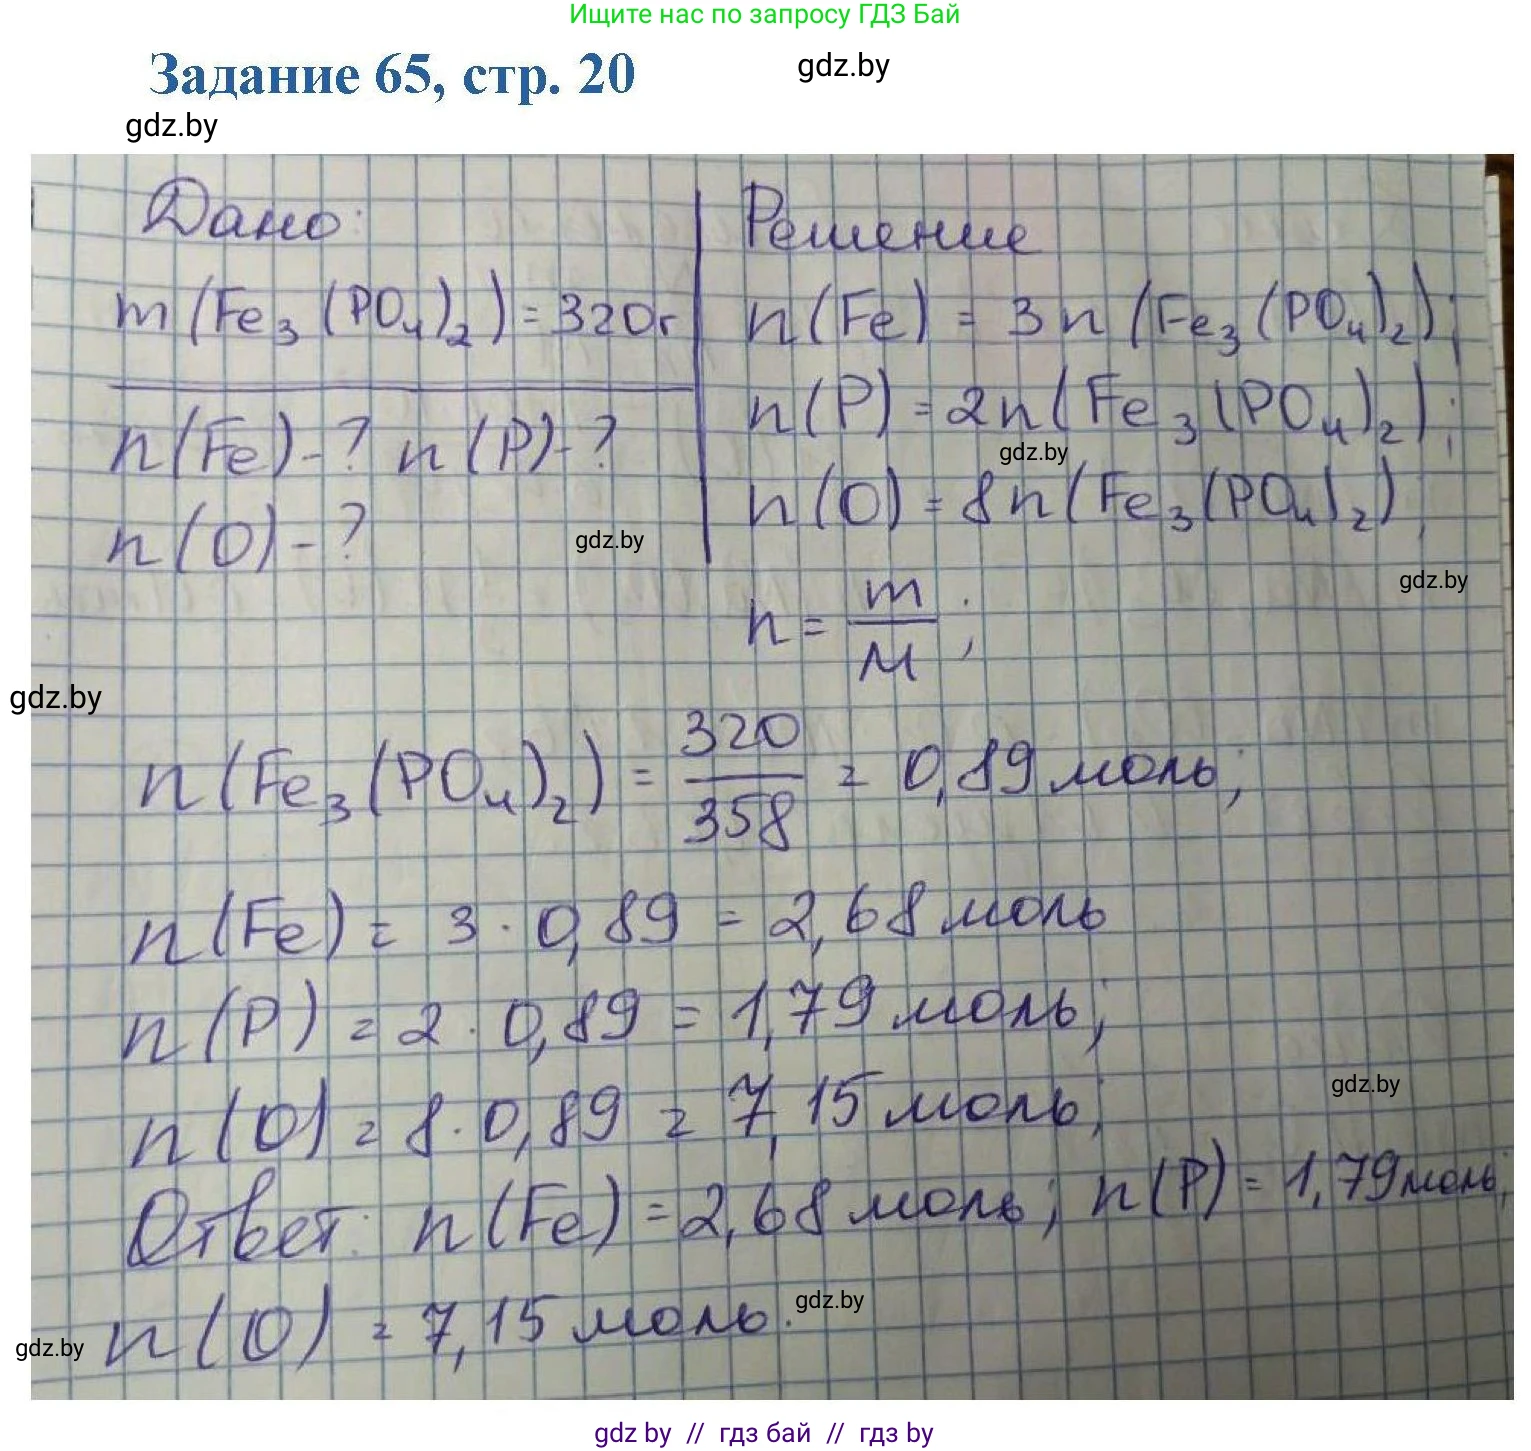 Ищите нас по запросу ГДЗ Бай
Задание 65, стр. 20
gdz.by
gdz.by
Дано:
m(Fe₃(PO₄)₂) = 320г
n(Fe)-? n(P)-?
n(O)-?
gdz.by
Решение
n(Fe) = 3n(Fe₃(PO₄)₂);
n(P) = 2n(Fe₃(PO₄)₂);
gdz.by
n(O) = 8n(Fe₃(PO₄)₂);
gdz.by
n = m/M;
gdz.by
n(Fe₃(PO₄)₂) = 320/358 = 0,89 моль;
n(Fe) = 3·0,89 = 2,68 моль
n(P) = 2·0,89 = 1,79 моль;
gdz.by
n(O) = 8·0,89 = 7,15 моль;
Ответ: n(Fe) = 2,68 моль; n(P) = 1,79 моль;
n(O) = 7,15 моль.
gdz.by
gdz.by
gdz by // гдз бай // гдз by